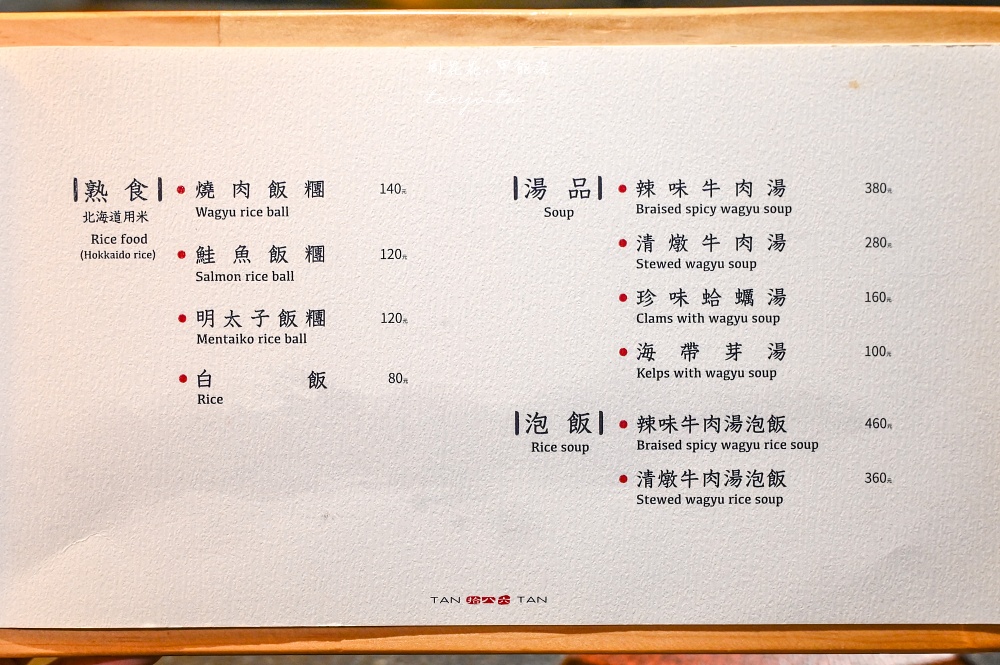 熟食
北海道用米
Rice food
(Hokkaido rice)
燒肉飯糰 140元
Wagyu rice ball
鮭魚飯糰 120元
Salmon rice ball
明太子飯糰 120元
Mentaiko rice ball
白飯 80元
Rice
湯品
Soup
辣味牛肉湯 380元
Braised spicy wagyu soup
清燉牛肉湯 280元
Stewed wagyu soup
珍味蛤蠣湯 160元
Clams with wagyu soup
海帶芽湯 100元
Kelps with wagyu soup
泡飯
Rice soup
辣味牛肉湯泡飯 460元
Braised spicy wagyu rice soup
清燉牛肉湯泡飯 360元
Stewed wagyu rice soup
TAN 拾八六 TAN